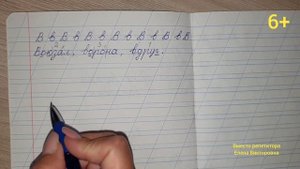 6+
В в В в В в В в В в В вВ
Вокзал, ворона, вдруг.
Вместо репетитора
Елена Викторовна